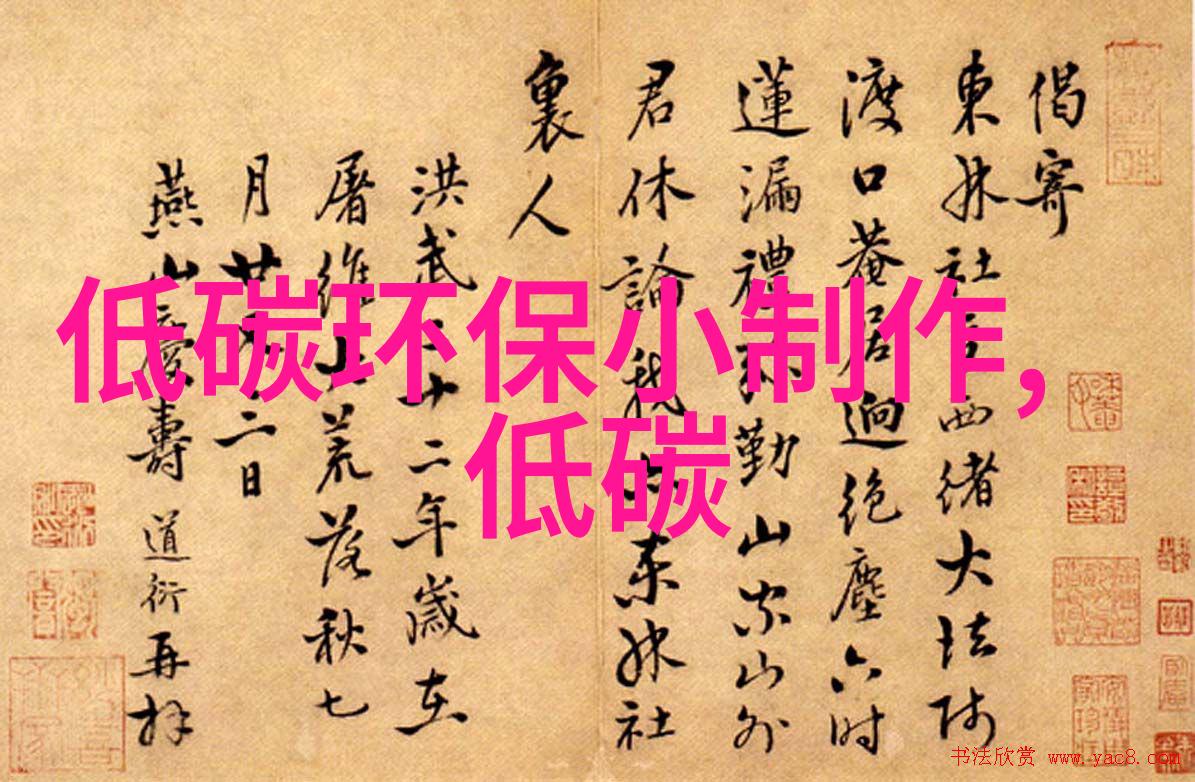 偈寄
東林社西緒大法師
渡口菴居迥絕塵六时
蓮漏禮勤山家山外
君休論我東林社
裏人
洪武二十二年歲在
屠維大荒落秋七
月廿二日
燕山慶壽道衍再拜
低碳环保小制作,
低碳
书法欣赏 www.yac8.com